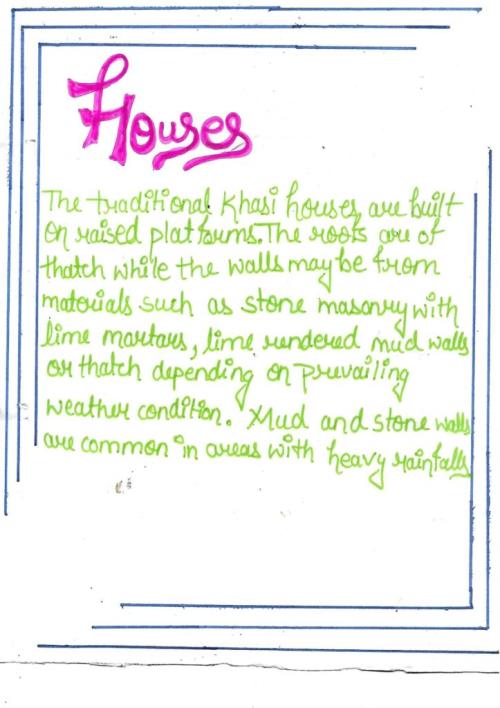 Houses
The traditional Khasi houses are built
on raised platforms. The roofs are of
thatch while the walls may be from
materials such as stone masonry with
lime mortars, lime rendered mud walls
or thatch depending on prevailing
weather condition. Mud and stone walls
are common in areas with heavy rainfalls